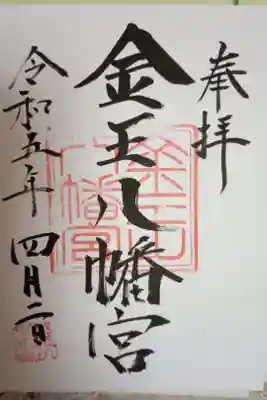 奉拝
金王八幡宮
令和五年四月二日